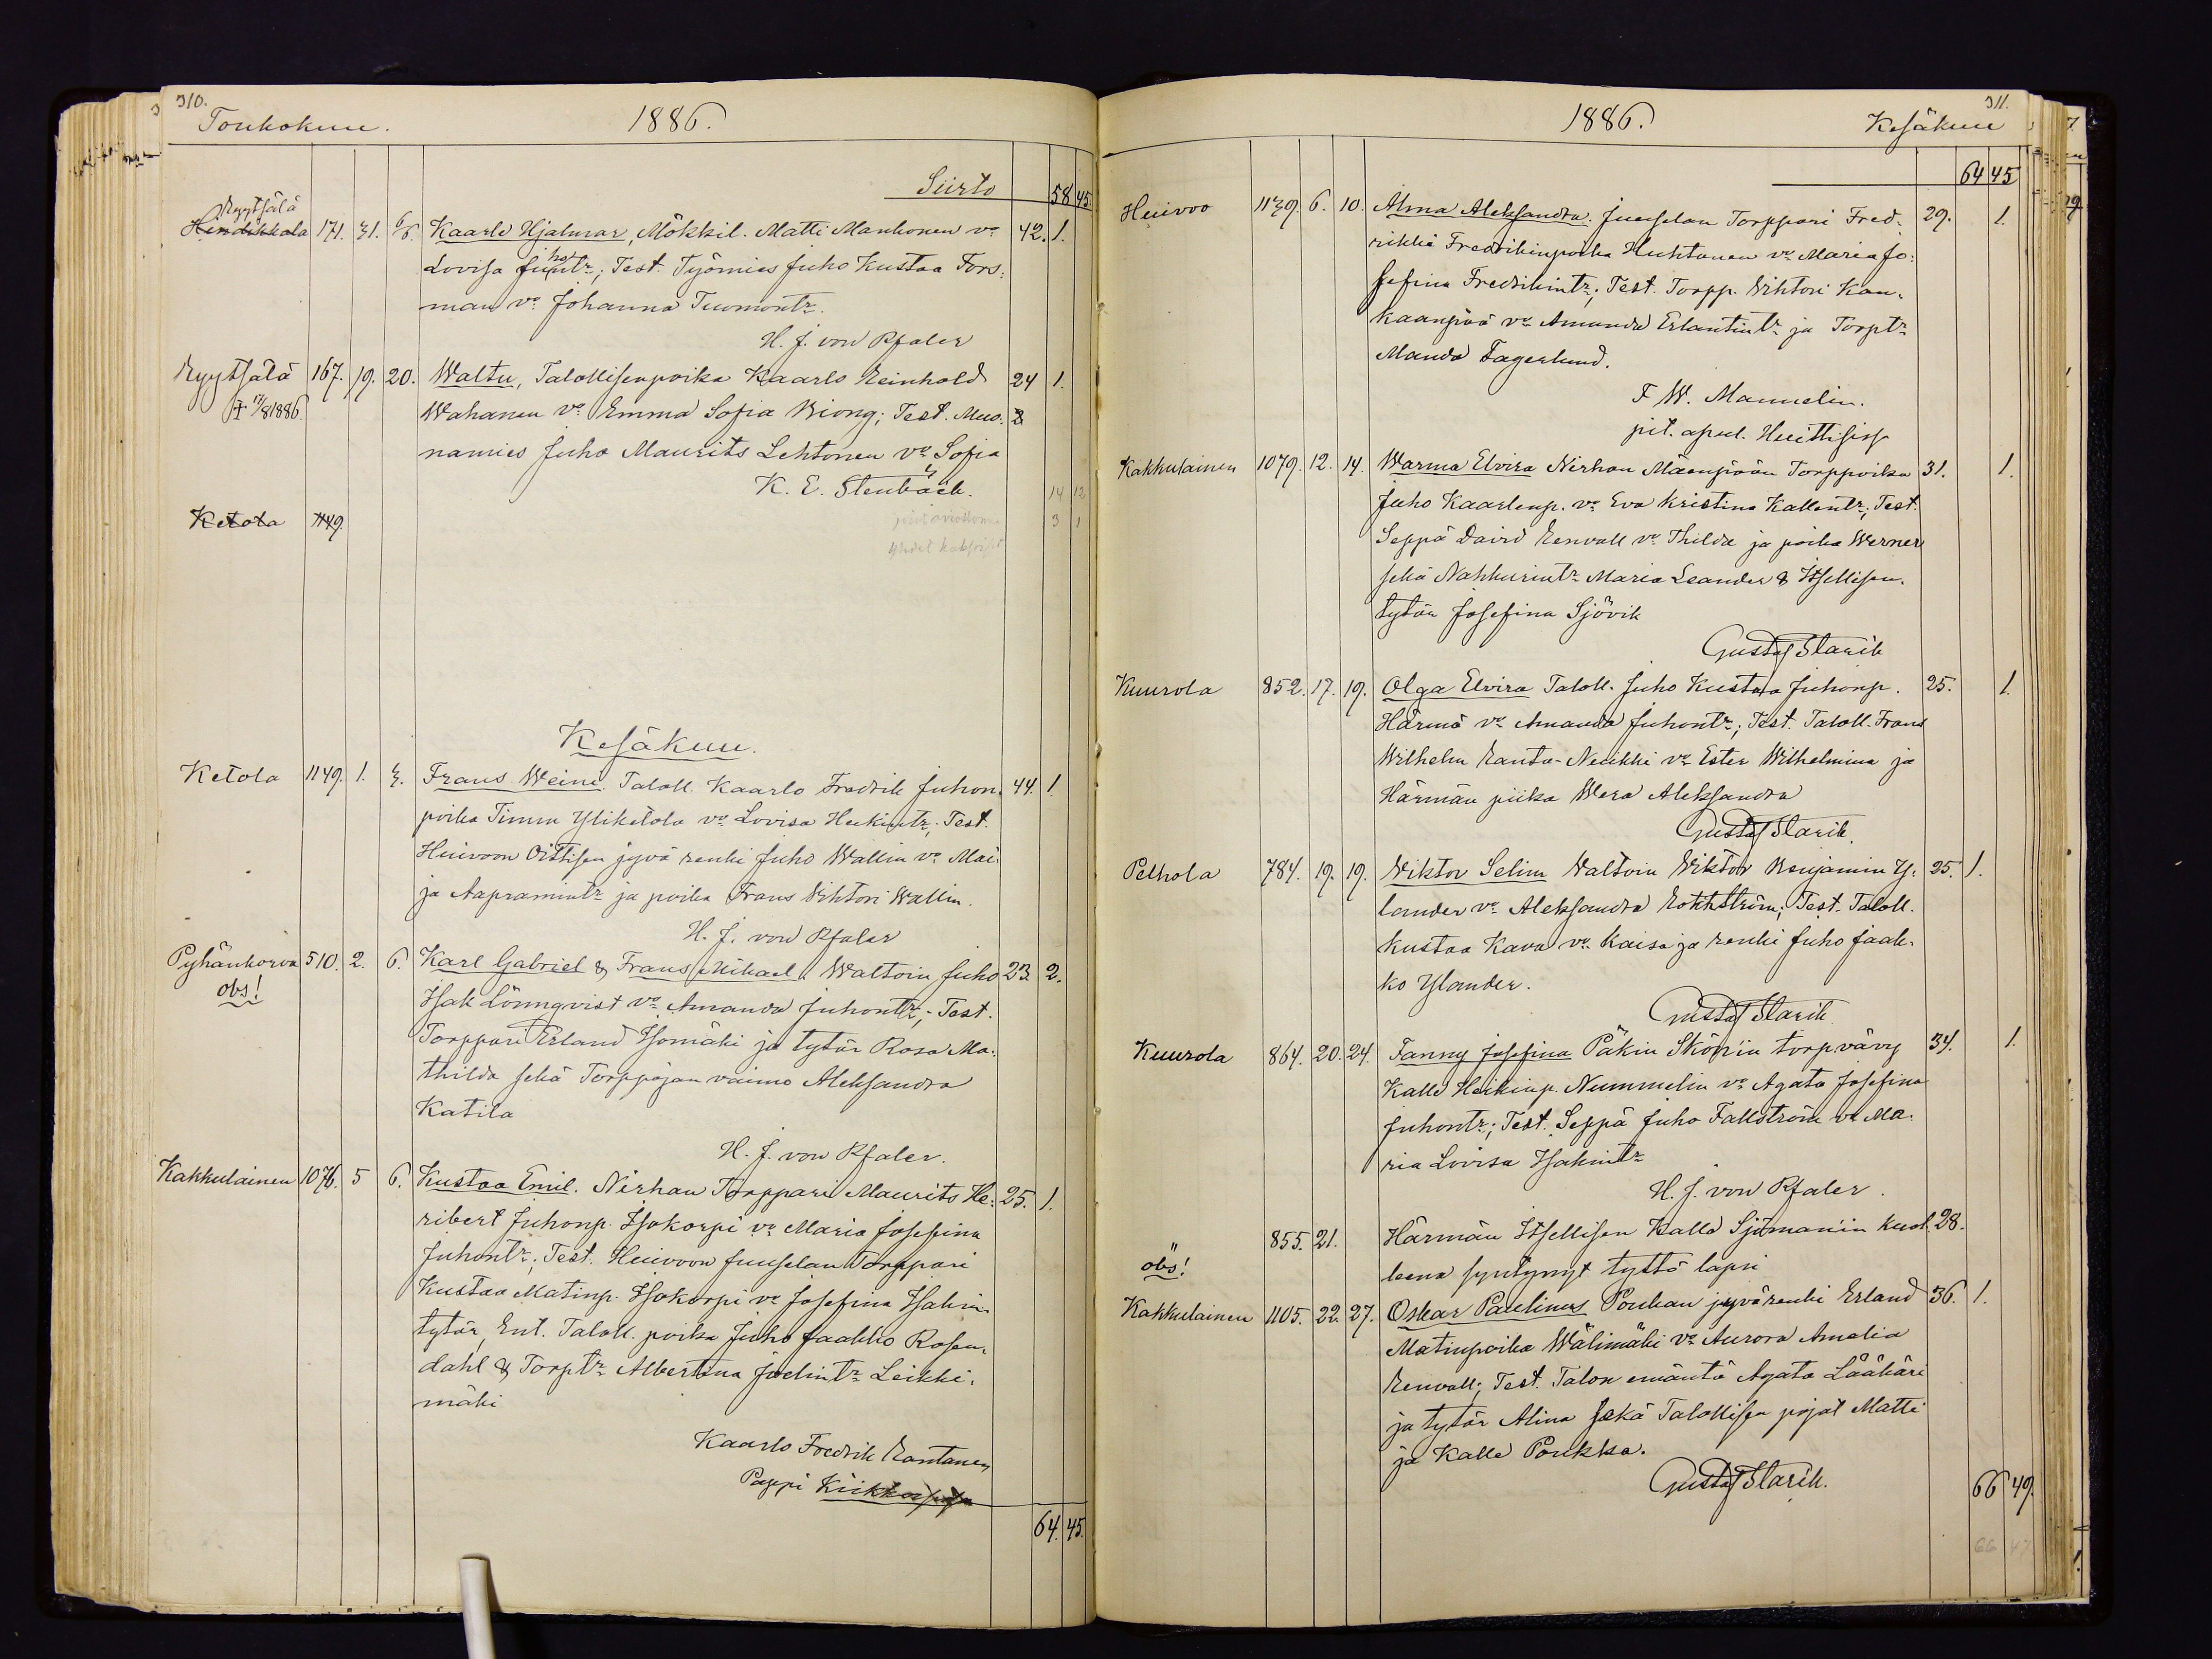 310.
Toukokuu. 1886.
Siirto 58 45.
Ryytsälä
Hindikkala 171. 31. 6/6. Kaarle Hjalmar, Mökkil. Matti Manhonen vo 42. 1.
Lovisa Juhontr; Test. Työmies Juho Kustaa Fors:
man vo Johanna Tuomontr.
H. J. von Pfaler
Ryytsälä 167. 19. 20. Waltu, Talollisenpoika Kaarlo Reinhold 24 1.
† 17/8 1886. Wahanen vo Emma Sofia Biong; Test. Muo.
namies Juho Maurits Lehtonen vo Sofia
K. E. Stenbäck. 14 12
Ketola 1149. 3 1
Kesäkuu.
Ketola 1149. 1. Frans Weine. Taloll. Kaarlo Fredrik Juhon. 44. 1.
poika Timm Ylikétola vo Lovisa Heikintr; Test.
Huivoon Oittisen jyvä renki Juho Wallin vo Mai:
ja Aapramintr ja poika Frans Vihtori Wallin.
H. J. von Pfaler
Pyhänkorva 510. 2. 6. Karl Gabriel & Frans Mikael. Waltoin Juho 23. 2.
obs! Isak Lönnqvist vo Amanda Juhontr; Test.
Torppari Erland Isomäki ja tytär Rosa Ma:
thilda sekä Torppajan vaimo Aleksandra
Katila
H. J. von Pfaler.
Kakkulainen 1076. 5 6. Kustaa Emil. Nirhan Torppari Maurits He: 25. 1.
ribert Juhonp. Isokorpi vo Maria Josefina
Juhontr; Test. Huivoon Juuselan Torppari
Kustaa Matinp. Isokorpi vo Josefina Isakin
tytär, Ent. Taloll. poika Juho Jaakko Rosen.
dahl & Torptr Albertina Joelintr Leikki.
mäki
Kaarlo Fredrik Rantanen
Pappi
64. 45.
311.
1886. Kesäkuu
64 45
Huivoo 1139. 6. 10. Alma Aleksandra. Juuselan Torppari Fred. 29. 1.
rikki Fredrikinpoika Huhtanen vo Maria Jo:
sefina Fredrikintr; Test. Torpp. Vihtori Kan.
kaanpää vo Amanda Erlantintr ja Torptr
Manda Fagerlund.
F W. Mannelin.
pit. apul. Huittisiss
Kakkulainen 1079. 12. 14. Warma Elvira Nirhan Mäenpään Torppoika 31. 1.
Juho Kaarlenp. vo Eva Kristina Kallentr; Test.
Seppä David Renvall vo Thilda ja poika Werner
sekä Nahkurintr Maria Leander & Itsellisen.
tytär Josefina Sjövik
Gustaf Starik
Kuurola 852. 17. 19. Olga Elvira Taloll. Juho Kustaa Juhonp. 25. 1.
Härmä vo Amanda Juhontr; Test. Taloll. Frans
Wilhelm Ranta-Neikki vo Ester Wilhelmina ja
Härmän piika Wera Aleksandra
Gustaf Starik.
Pelhola 784. 19. 19. Viktor Selim Waltoin Viktor Benjamin Y. 25. 1.
lander vo Aleksandra Rothström; Test. Taloll.
Kustaa Kava vo Kaisa ja renki Juho Jaak.
ko Ylander.
Gustaf Starik
Kuurola 864. 20. 24. Fanny Josefina Päkin Sköpin torpvävy 34. 1.
Kalle Heikinp. Nummelin vo Agata Josefina
Juhontr; Test. Seppä Juho Fallström vo Ma.
ria Lovisa Isakintr
H. J. von Pfaler.
855. 21. Härmän Itsellisen Kalle Sjömanin kuol. 28.
obs! leena syntynyt tyttö lapsi
Kakkulainen 1105. 22. 27. Oskar Paulinus Poukan jyvärenki Erland 36. 1.
Matinpoika Wälimäki vo Aurora Amalia
Renvall; Test. Talon emäntä Agata Lääkäri
ja tytär Alina sekä Talollisen pojat Matti
ja Kalle Poukka.
Gustaf Starik.
66 49.
66 47